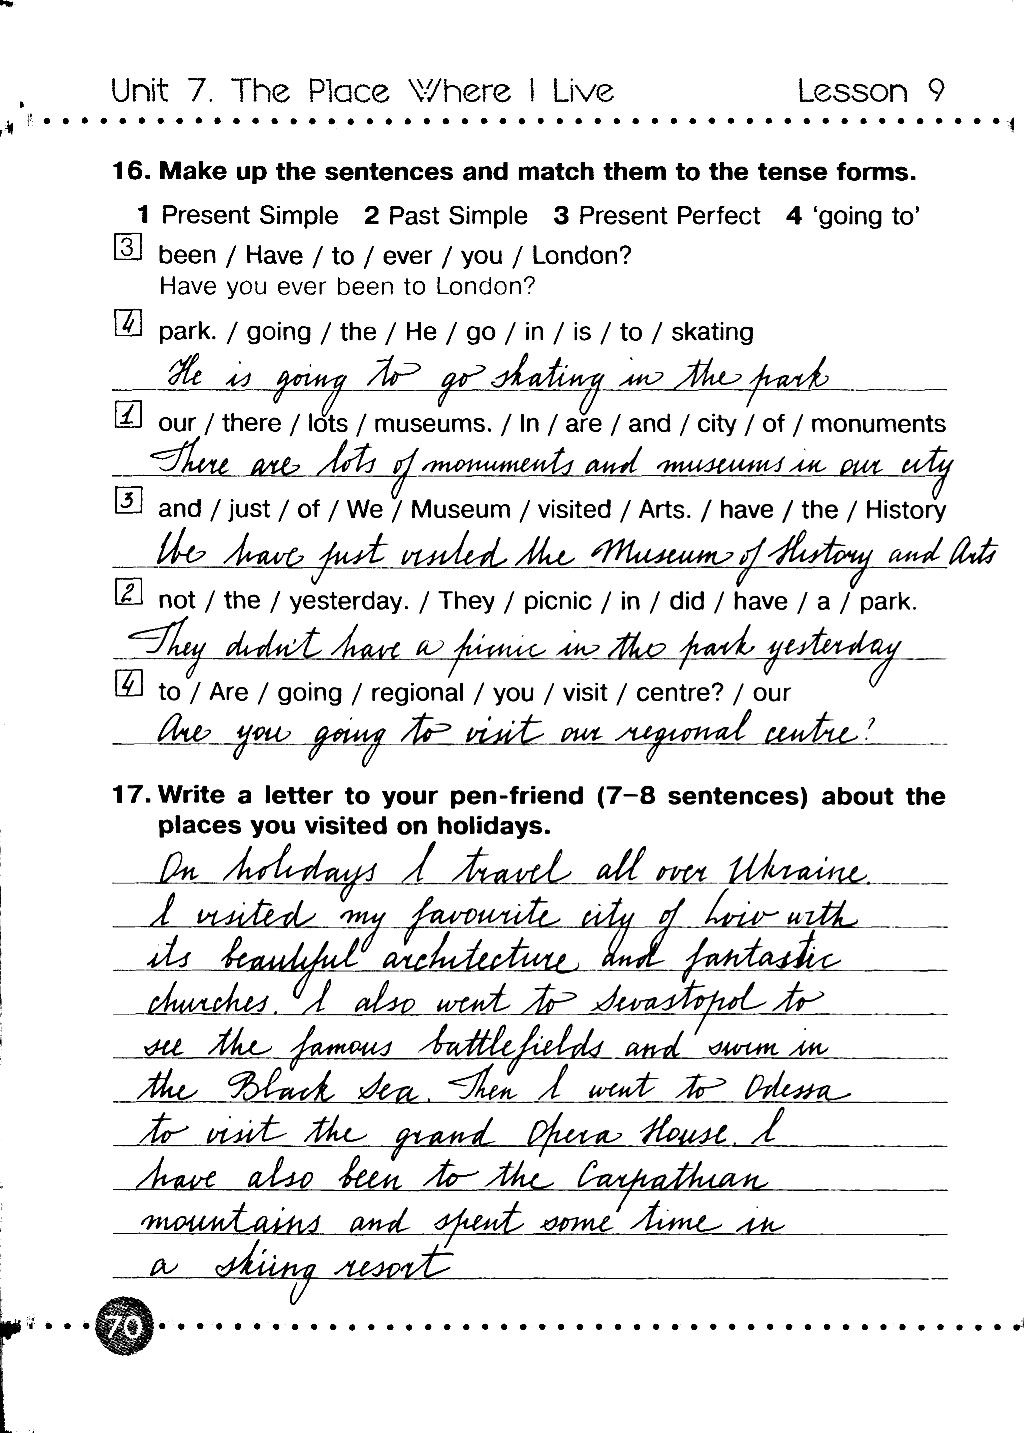 Unit 7. The Place Where I Live Lesson 9
16. Make up the sentences and match them to the tense forms.
1 Present Simple 2 Past Simple 3 Present Perfect 4 'going to'
3 been / Have / to / ever / you / London?
Have you ever been to London?
4 park. / going / the / He / go / in / is / to / skating
He is going to go skating in the park
1 our / there / lots / museums. / In / are / and / city / of / monuments
There are lots of monuments and museums in our city
3 and / just / of / We / Museum / visited / Arts. / have / the / History
We have just visited the Museum of History and Arts
2 not / the / yesterday. / They / picnic / in / did / have / a / park.
They didn't have a picnic in the park yesterday
4 to / Are / going / regional / you / visit / centre? / our
Are you going to visit our regional centre?
17. Write a letter to your pen-friend (7–8 sentences) about the
places you visited on holidays.
On holidays I travel all over Ukraine.
I visited my favourite city of Lviv with
its beautyful architecture and fantastic
churches. I also went to Sevastopol to
see the famous battlefields and swim in
the Black Sea. Then I went to Odessa
to visit the grand Opera House. I
have also been to the Carpathian
mountains and spent some time in
a skiing resort
70